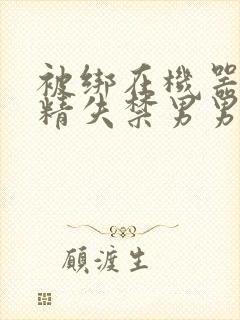 被绑在機器
精失禁男男
顧渡生